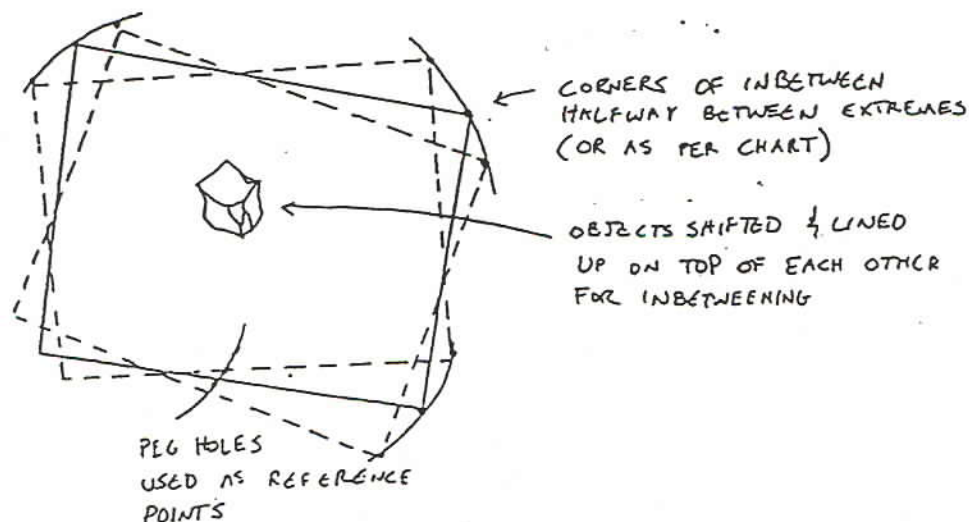 CORNERS OF INBETWEEN
HALFWAY BETWEEN EXTREMES
(OR AS PER CHART)
OBJECTS SHIFTED & LINED
UP ON TOP OF EACH OTHER
FOR INBETWEENING
PEG HOLES
USED AS REFERENCE
POINTS